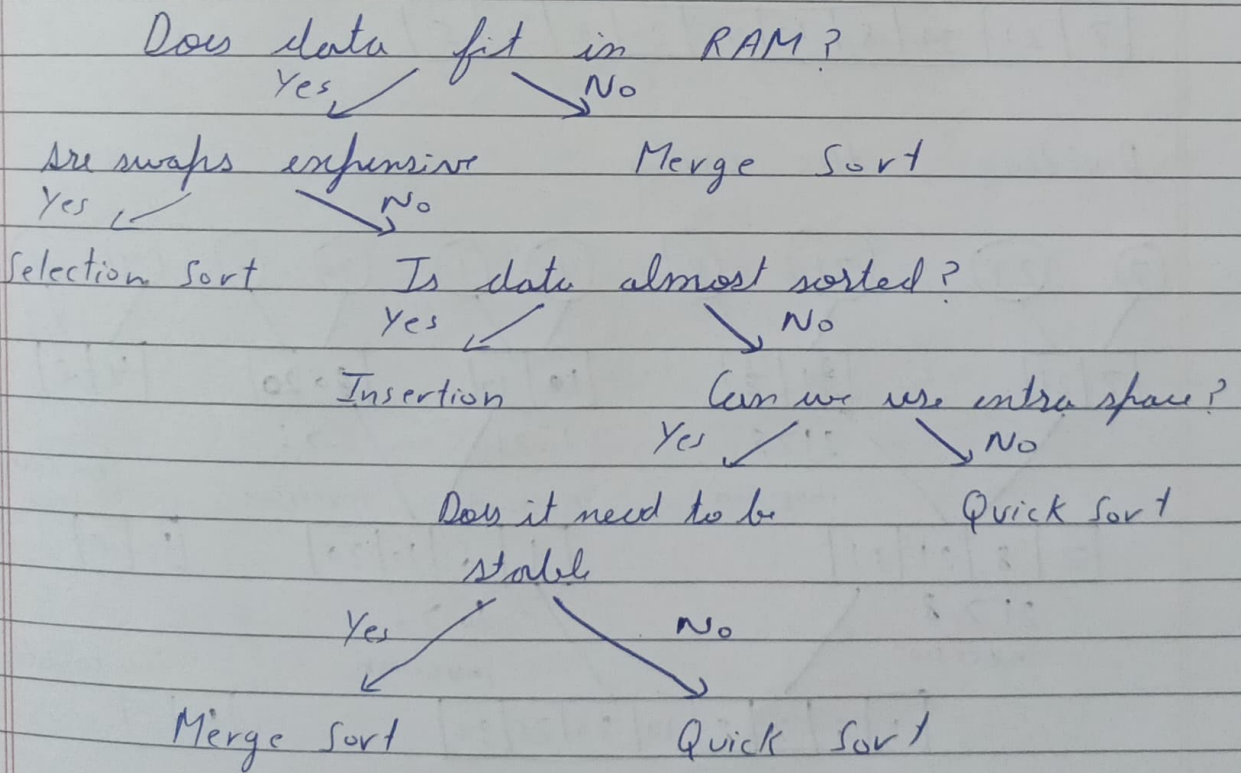 Does data fit in RAM?
Yes No
Are swaps expensive Merge Sort
Yes No
Selection Sort Is data almost sorted?
Yes No
Insertion Can we use extra space?
Yes No
Does it need to be Quick Sort
stable
Yes No
Merge Sort Quick Sort